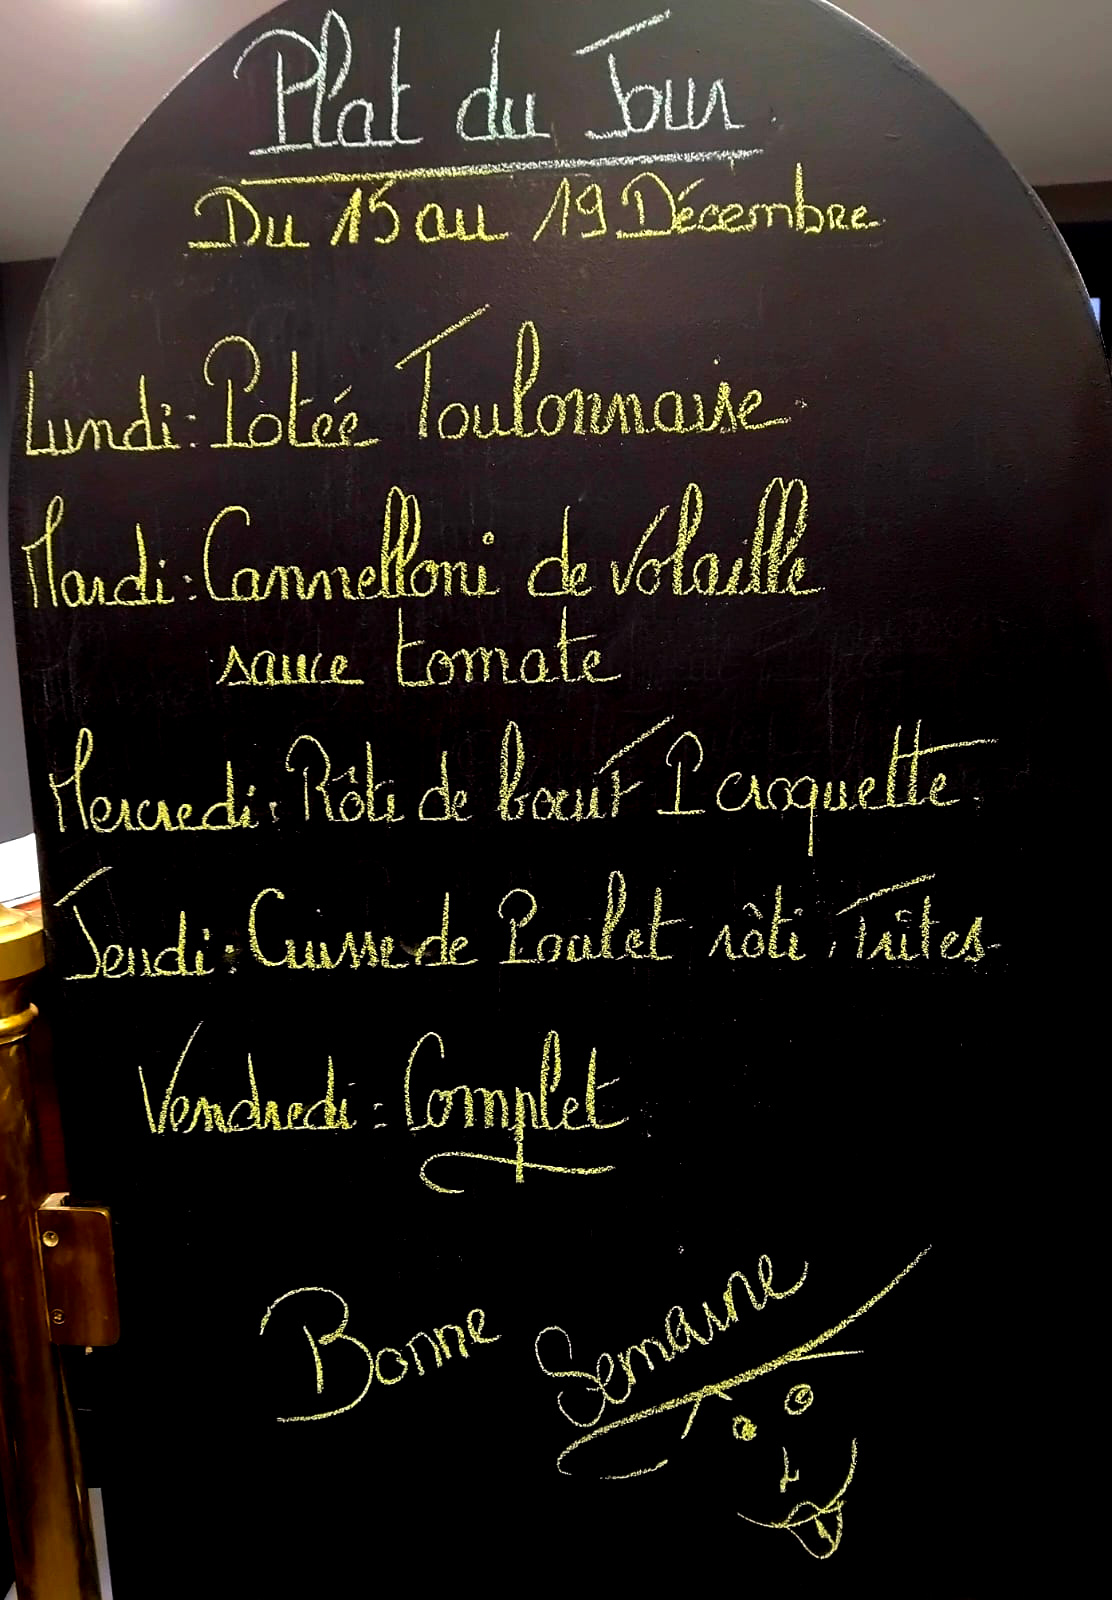 Plat du Jour
Du 15 au 19 Décembre
Lundi : Potée Toulonnaise
Mardi : Cannelloni de volaille
sauce tomate
Mercredi : Rôti de bœuf P croquette
Jeudi : Cuisse de Poulet rôti, Frites
Vendredi : Complet
Bonne Semaine